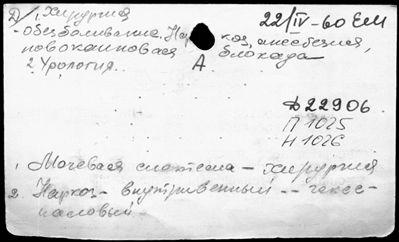 Д/ 1, Хирургия 22/IV-60 ЕМ
- обезболивание. Наркоз, анестезия,
новокаиновая А блокада
2 Урология.
Д 22906
П 1025
Н 1026
1. Мочевая система - хирургия
2. Наркоз - внутривенный -- гексе-
наловый